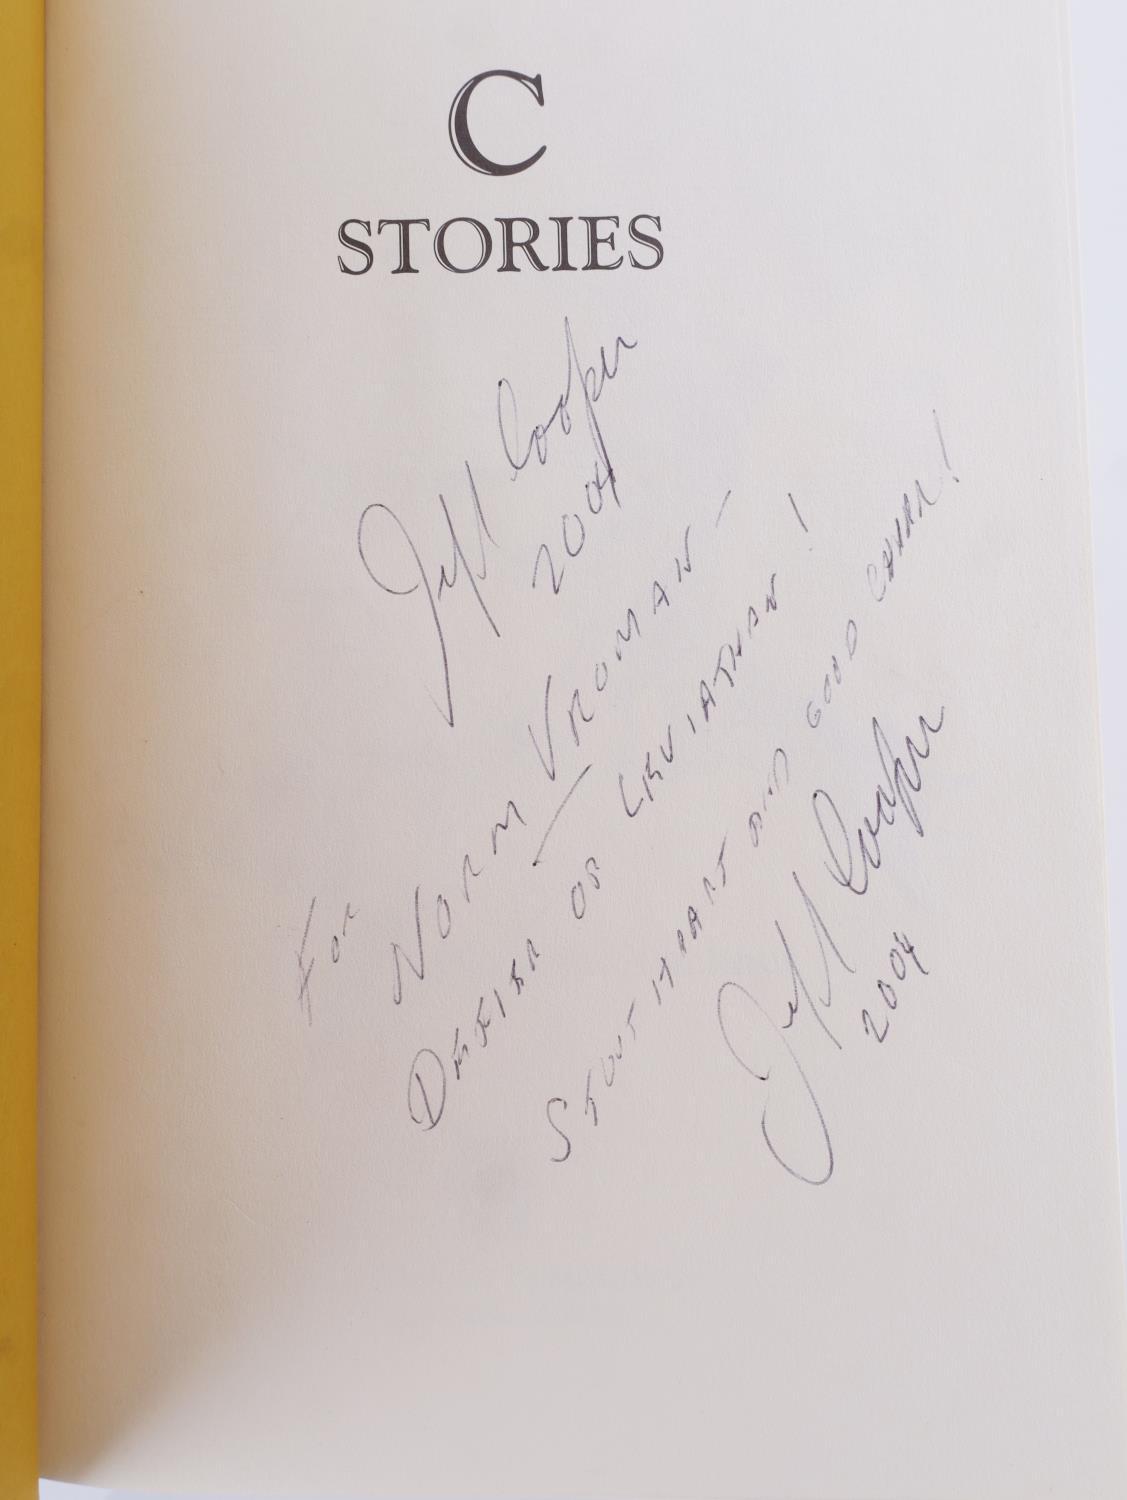 C
STORIES
Jeff Cooper
2004
FOR
NORM VROMAN –
DEFIER OF LEVIATHAN!
STOUT HEART AND GOOD CHEER!
Jeff Cooper
2004